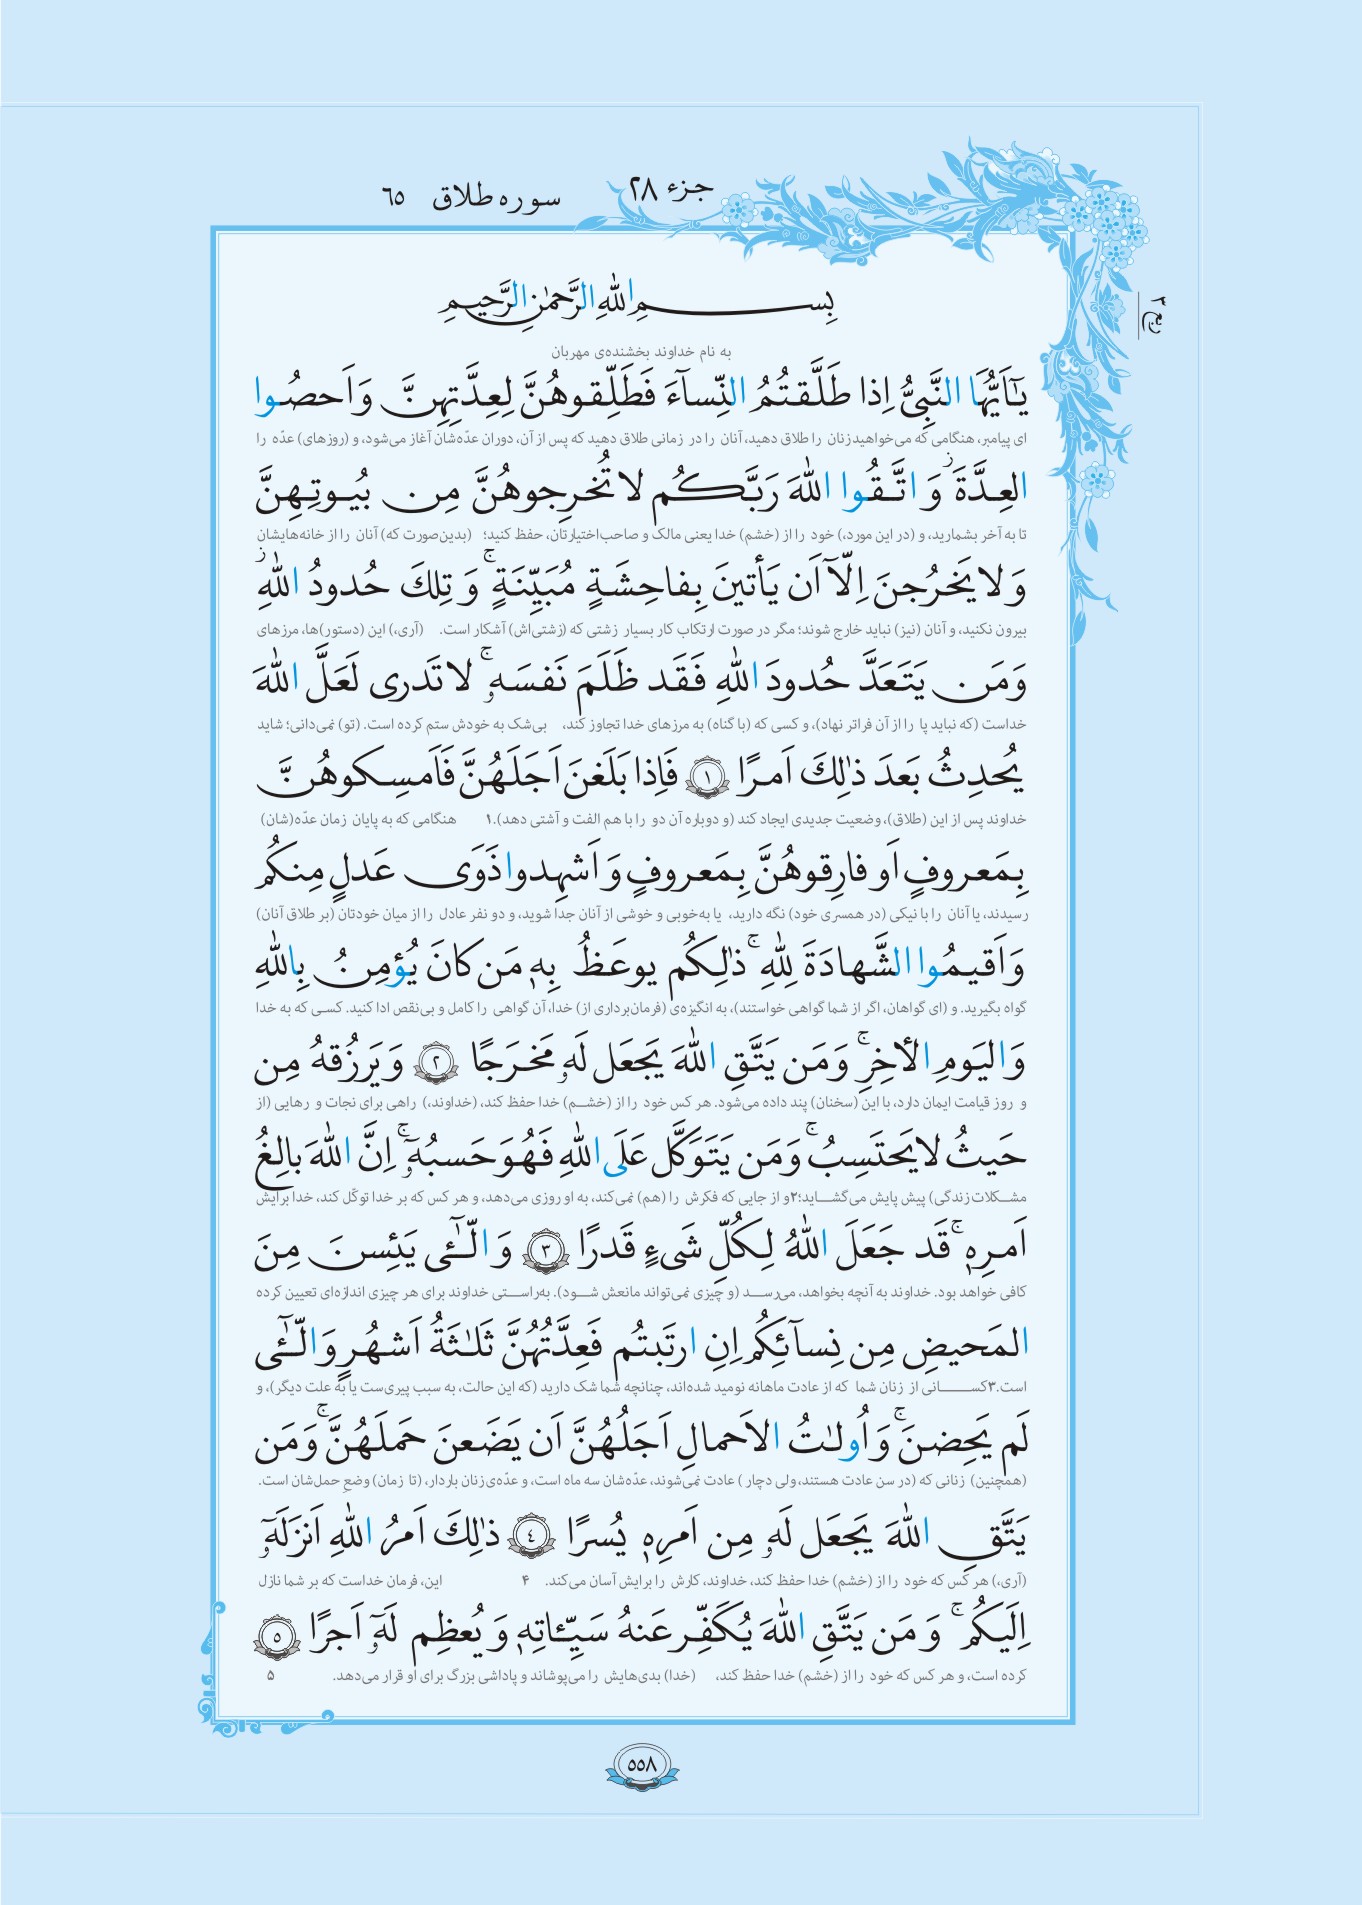 جزء ۲۸
سوره طلاق ٦٥
ربع ۳
بِسمِ اللّٰهِ الرَّحمٰنِ الرَّحيمِ
به نام خداوند بخشنده‌ی مهربان
يٰٓاَيُّهَا النَّبِىُّ اِذا طَلَّقتُمُ النِّسآءَ فَطَلِّقوهُنَّ لِعِدَّتِهِنَّ وَاَحصُوا
ای پیامبر، هنگامی که می‌خواهید زنان را طلاق دهید، آنان را در زمانی طلاق دهید که پس از آن، دوران عدّه‌شان آغاز می‌شود، و (روزهای) عدّه را
العِدَّةَ ۖز وَاتَّقُوا اللّٰهَ رَبَّكُم لا تُخرِجوهُنَّ مِن بُيوتِهِنَّ
تا به آخر بشمارید، و (در این مورد،) خود را از (خشم) خدا یعنی مالک و صاحب‌اختیارتان، حفظ کنید؛ (بدین‌صورت که) آنان را از خانه‌هایشان
وَلا يَخرُجنَ اِلّآ اَن يَأتينَ بِفاحِشَةٍ مُبَيِّنَةٍ ۚ وَتِلكَ حُدودُ اللّٰهِ ز
بیرون نکنید، و آنان (نیز) نباید خارج شوند؛ مگر در صورت ارتکاب کار بسیار زشتی که (زشتی‌اش) آشکار است. (آری،) این (دستور)ها، مرزهای
وَمَن يَتَعَدَّ حُدودَ اللّٰهِ فَقَد ظَلَمَ نَفسَهٗ ۚ لا تَدرى لَعَلَّ اللّٰهَ
خداست (که نباید پا را از آن فراتر نهاد)، و کسی که (با گناه) به مرزهای خدا تجاوز کند، بی‌شک به خودش ستم کرده است. (تو) نمی‌دانی؛ شاید
يُحدِثُ بَعدَ ذٰلِكَ اَمرًا ١ فَاِذا بَلَغنَ اَجَلَهُنَّ فَاَمسِكوهُنَّ
خداوند پس از این (طلاق)، وضعیت جدیدی ایجاد کند (و دوباره آن دو را با هم الفت و آشتی دهد).۱ هنگامی که به پایان زمان عدّه(شان)
بِمَعروفٍ اَو فارِقوهُنَّ بِمَعروفٍ وَاَشهِدوا ذَوَى عَدلٍ مِنكُم
رسیدند، یا آنان را با نیکی (در همسری خود) نگه دارید، یا به‌خوبی و خوشی از آنان جدا شوید، و دو نفر عادل را از میان خودتان (بر طلاق آنان)
وَاَقيمُوا الشَّهادَةَ لِلّٰهِ ۚ ذٰلِكُم يوعَظُ بِهٖ مَن كانَ يُؤمِنُ بِاللّٰهِ
گواه بگیرید. و (ای گواهان، اگر از شما گواهی خواستند)، به انگیزه‌ی (فرمان‌برداری از) خدا، آن گواهی را کامل و بی‌نقص ادا کنید. کسی که به خدا
وَاليَومِ الأخِرِ ۚ وَمَن يَتَّقِ اللّٰهَ يَجعَل لَهٗ مَخرَجًا ٢ وَيَرزُقهُ مِن
و روز قیامت ایمان دارد، با این (سخنان) پند داده می‌شود. هر کس خود را از (خشـم) خدا حفظ کند، (خداوند،) راهی برای نجات و رهایی (از
حَيثُ لا يَحتَسِبُ ۚ وَمَن يَتَوَكَّل عَلَى اللّٰهِ فَهُوَ حَسبُهٗٓ ۚ اِنَّ اللّٰهَ بالِغُ
مشـکلات زندگی) پیش پایش می‌گشـاید؛۲و از جایی که فکرش را (هم) نمی‌کند، به او روزی می‌دهد، و هر کس که بر خدا توکّل کند، خدا برایش
اَمرِهٖ ۚ قَد جَعَلَ اللّٰهُ لِكُلِّ شَىءٍ قَدرًا ٣ وَالّٰٓـٔى يَئِسنَ مِنَ
کافی خواهد بود. خداوند به آنچه بخواهد، می‌رسـد (و چیزی نمی‌تواند مانعش شـود). به‌راسـتی خداوند برای هر چیزی اندازه‌ای تعیین کرده
المَحيضِ مِن نِسآئِكُم اِنِ ارتَبتُم فَعِدَّتُهُنَّ ثَلٰثَةُ اَشهُرٍ وَالّٰٓـٔى
است.۳کســانی از زنان شما که از عادت ماهانه نومید شده‌اند، چنانچه شما شک دارید (که این حالت، به سبب پیری‌ست یا به علت دیگر)، و
لَم يَحِضنَ ۚ وَاُولٰتُ الاَحمالِ اَجَلُهُنَّ اَن يَضَعنَ حَملَهُنَّ ۚ وَمَن
(همچنین) زنانی که (در سن عادت هستند، ولی دچار ) عادت نمی‌شوند، عدّه‌شان سه ماه است، و عدّه‌ی زنان باردار، (تا زمان) وضعِ حمل‌شان است.
يَتَّقِ اللّٰهَ يَجعَل لَهٗ مِن اَمرِهٖ يُسرًا ٤ ذٰلِكَ اَمرُ اللّٰهِ اَنزَلَهٗٓ
(آری،) هر کس که خود را از (خشم) خدا حفظ کند، خداوند، کارش را برایش آسان می‌کند. ۴ این، فرمان خداست که بر شما نازل
اِلَيكُم ۚ وَمَن يَتَّقِ اللّٰهَ يُكَفِّر عَنهُ سَيِّـٔاتِهٖ وَيُعظِم لَهٗٓ اَجرًا ٥
کرده است، و هر کس که خود را از (خشم) خدا حفظ کند، (خدا) بدی‌هایش را می‌پوشاند و پاداشی بزرگ برای او قرار می‌دهد. ۵
۵۵۸